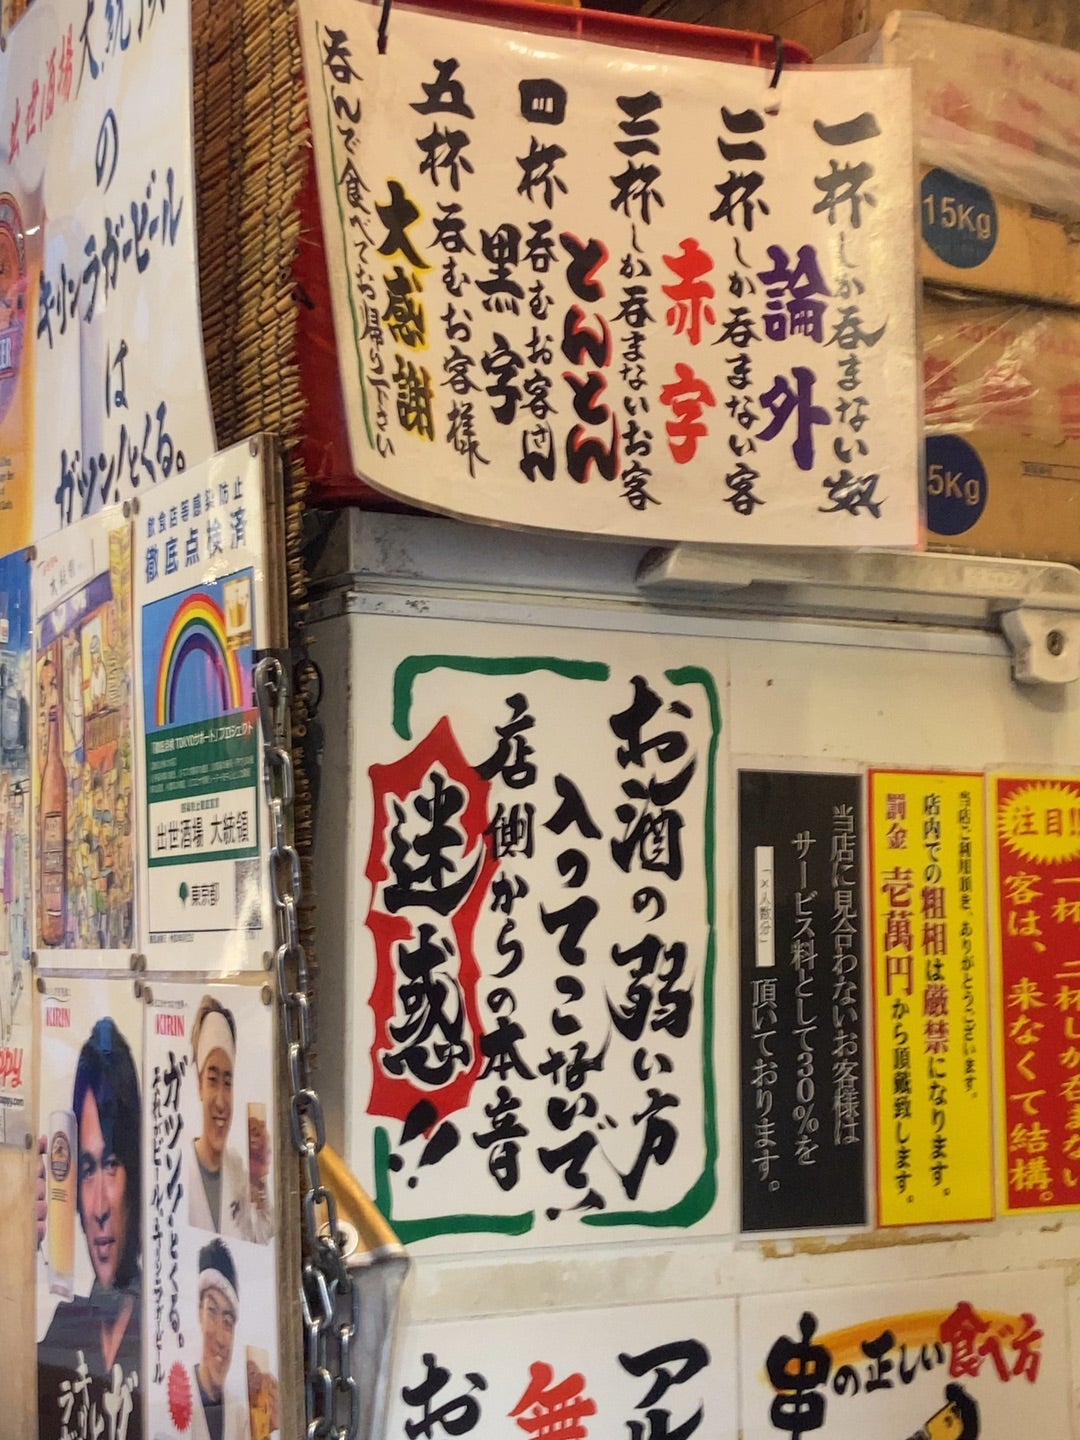 一杯しか呑まない奴
論外
二杯しか呑まない客
赤字
三杯しか呑まないお客
とんとん
四杯呑むお客さん
黒字
五杯呑むお客様
大感謝
呑んで食べてお帰り下さい
出世酒場 大統領
の
キリンラガービール
は
ガツン!とくる。
15Kg
5Kg
飲食店等感染防止
徹底点検済
「徹底点検 TOKYOサポート」プロジェクト
出世酒場 大統領
東京都
お酒の弱い方
入ってこないで、
店側からの本音
迷惑!!
当店に見合わないお客様は
サービス料として30%を
「×人数分」
頂いております。
当店ご利用頂き、ありがとうございます。
店内での粗相は厳禁になります。
罰金 壱萬円から頂戴致します。
注目!!
一杯、二杯しか呑まない
客は、来なくて結構。
KIRIN
KIRIN
ガツン!とくる。
それがビール。キリンラガービール
アル
無
お
串の正しい食べ方